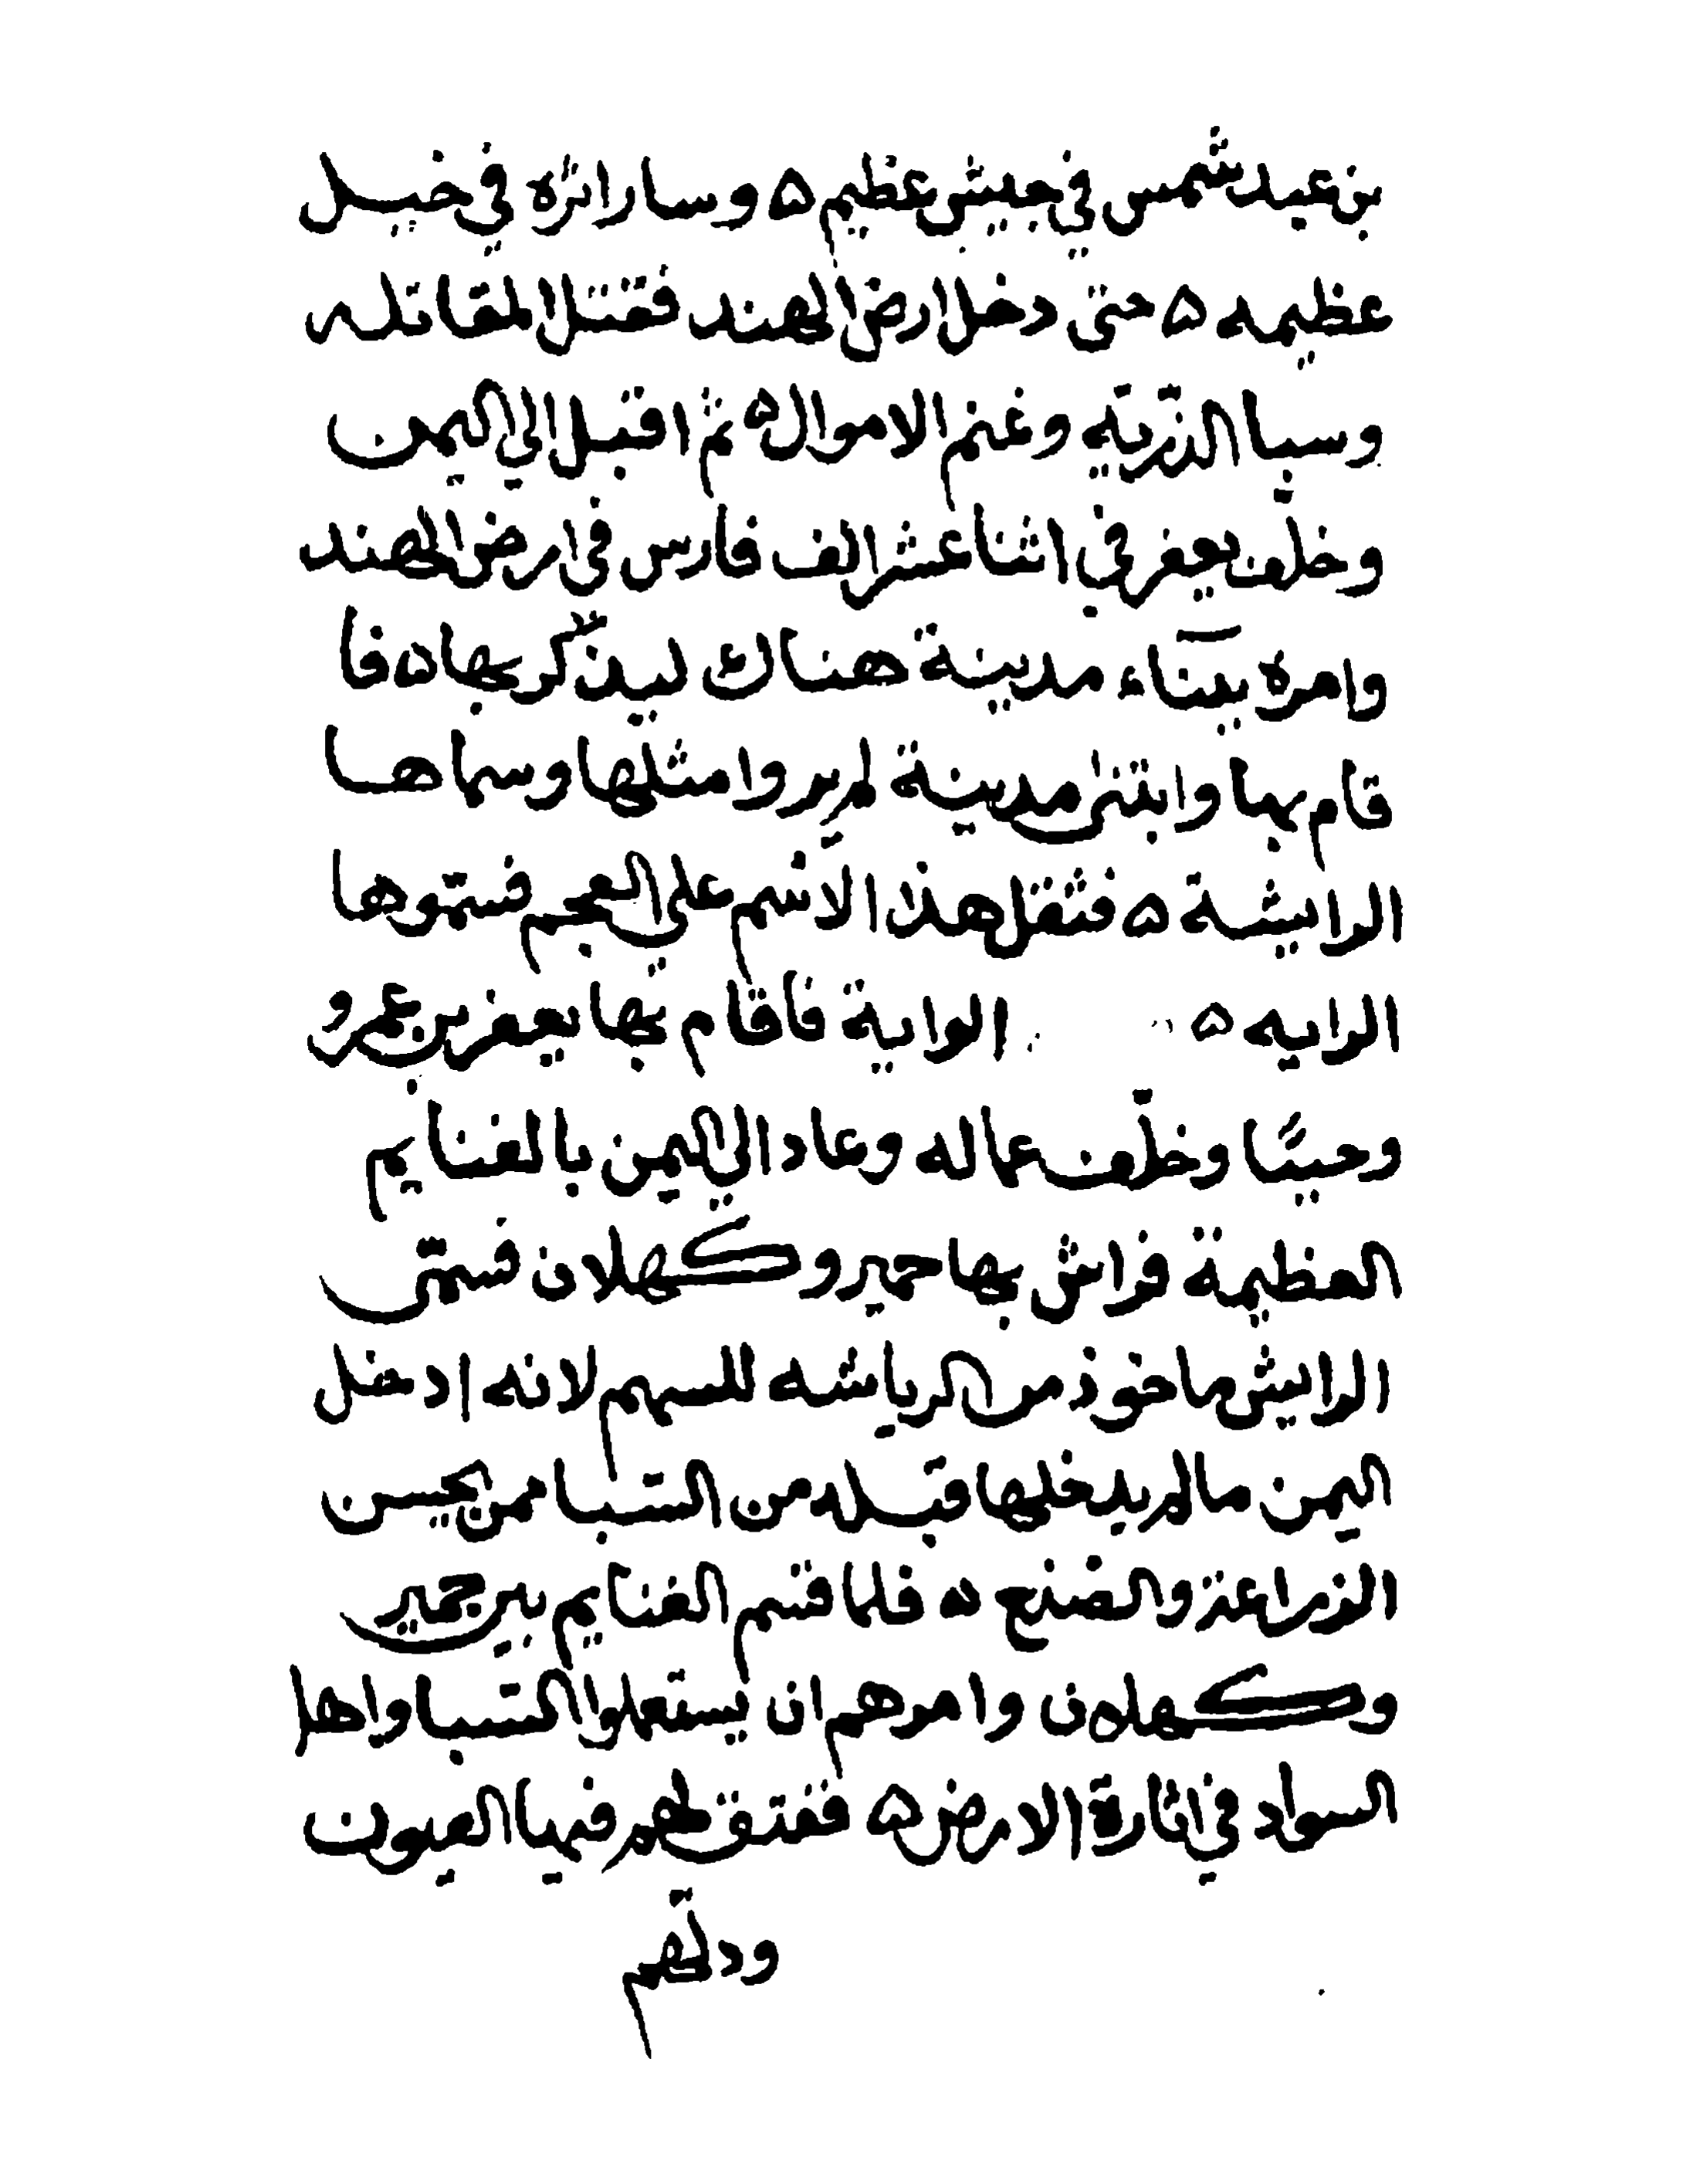 بن عبد شمس في جيش عظيم ۵ وسار اثره في خيل
عظيمه ۵ حتى دخل ارض الهند فقتل المقاتله
وسبا الذرية وغنم الاموال ۵ ثم اقبل الى اليمن
وخلّف يعفر في اثنا عشر الف فارس في ارض الهند
وامره ببناء مدينة هناك ليذكر بها ۵ فا
قام بها وابتنى مدينة لم يروا مثلها وسماها
الرايشة ۵ فثقل هذا الاسم على العجم فسموها
الرايه ۵ الراية فاقام بها يعفر بن عمرو
وحينًا وخلّف عماله وعاد الى اليمن بالغنايم
العظيمة فراش بها حمير وكهلان فسمّى
الرايش ماخوذ من الرياشه للسهم لانه ادخل
اليمن مالم يدخلها قبله من السبا ممن يحسن
الزراعة والصنع ۵ فلما قسم الغنايم بين حمير
وكهلان وامرهم ان يستعملوا السبا واهل
السواد في اثارة الارض ۵ ففتق لهم فيها العيون
ودلّهم